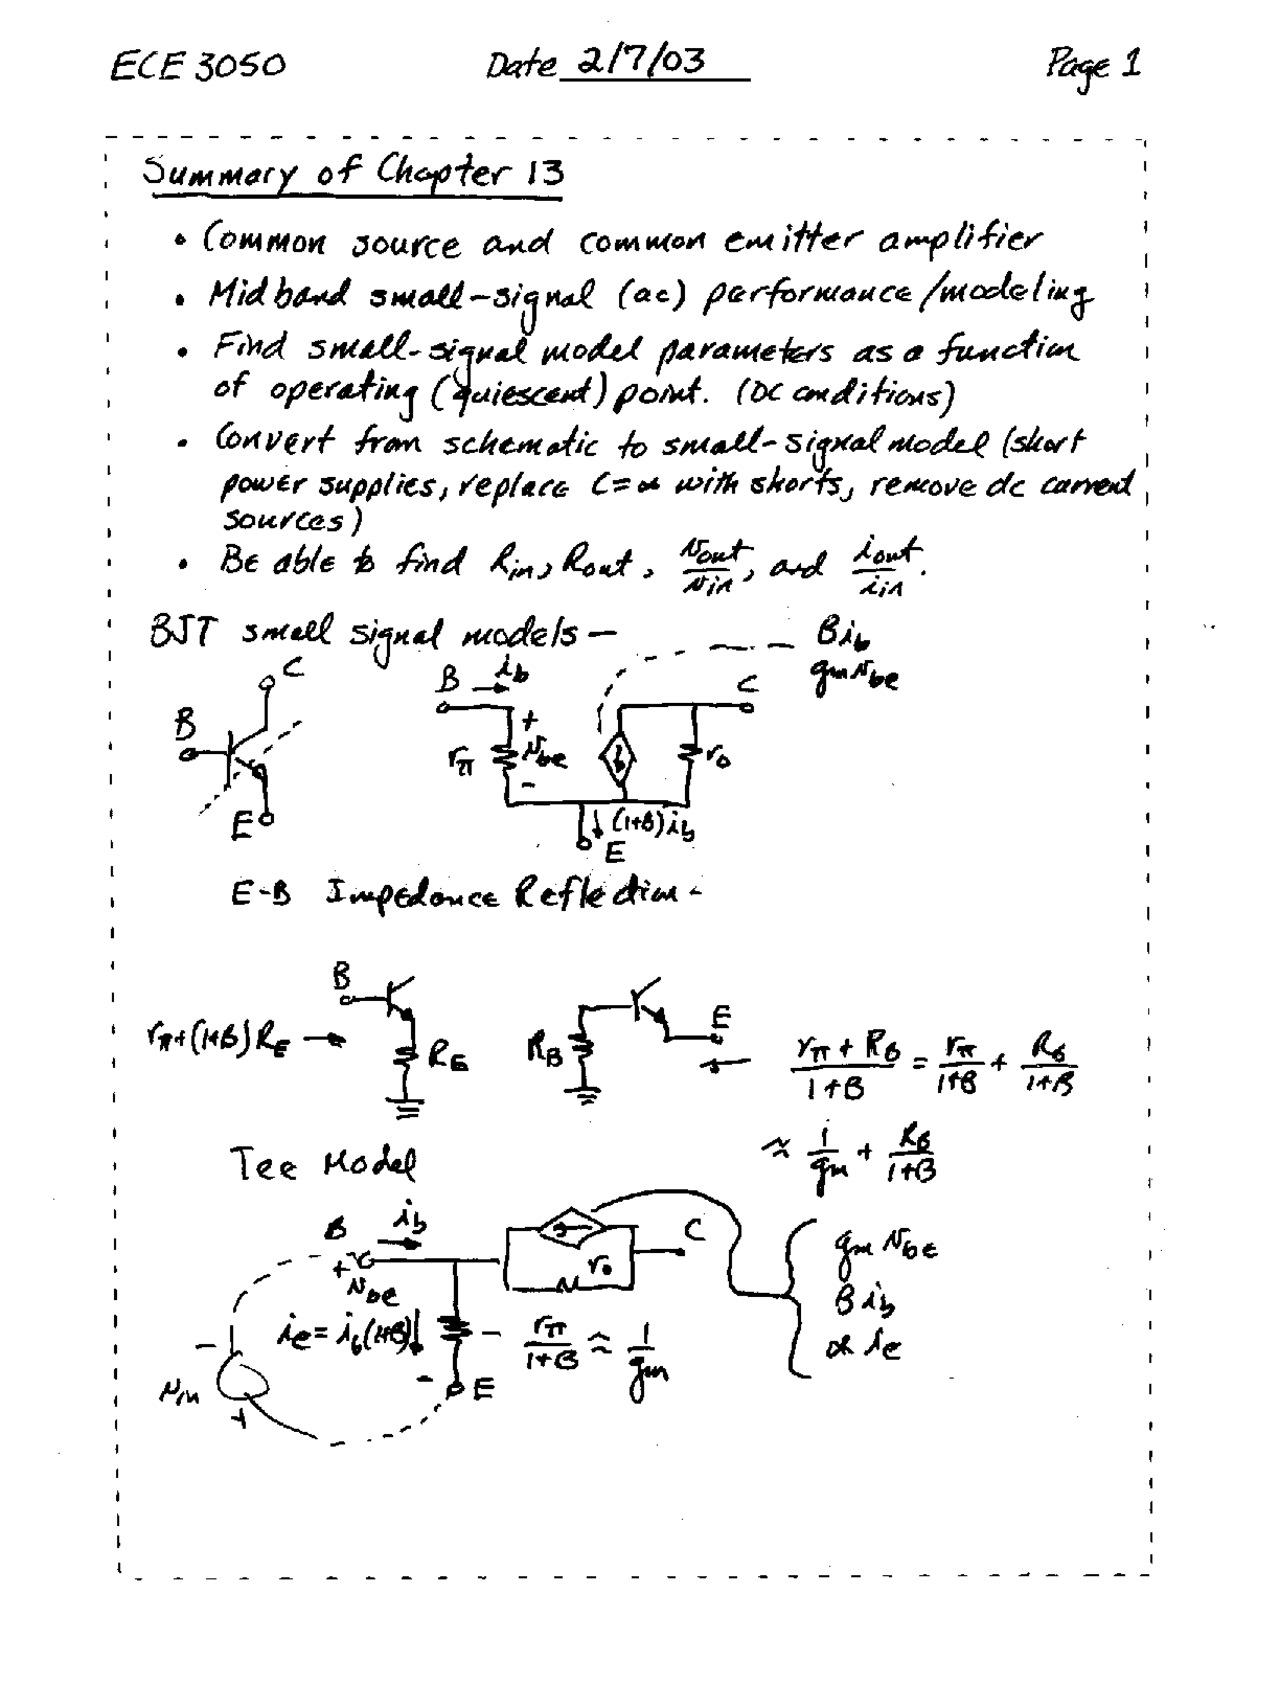 ECE 3050 Date 2/7/03 Page 1
Summary of Chapter 13
• Common source and common emitter amplifier
• Midband small-signal (ac) performance/modeling
• Find small-signal model parameters as a function
of operating (quiescent) point. (DC conditions)
• Convert from schematic to small-signal model (short
power supplies, replace C=∞ with shorts, remove dc current
sources)
• Be able to find Rin, Rout, vout/vin, and iout/iin.
BJT small signal models –
βib
gmvbe
C
B
E
B ib
C
rπ
+
vbe
-
ro
(1+β)ib
E
E-B Impedance Reflection -
B
rπ+(1+β)RE → RE
RB E
(rπ + RB)/(1+β) = rπ/(1+β) + RB/(1+β)
≈ 1/gm + RB/(1+β)
Tee Model
B ib
C
+
vbe
ro
gmvbe
βib
α ie
ie = ib(1+β)
rπ/(1+β) ≈ 1/gm
-
-
E
vin
+